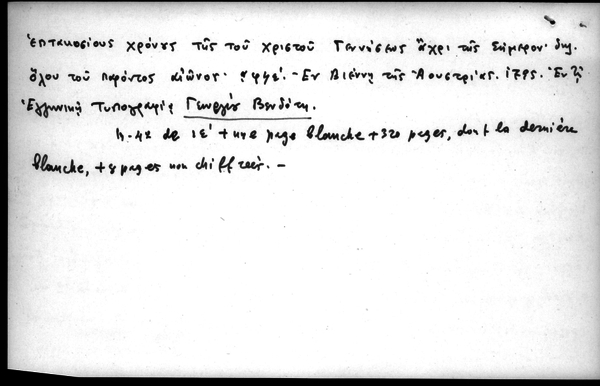 ἑπτακοσίους χρόνους τῆς τοῦ Χριστοῦ Γεννήσεως ἄχρι τῆς Σήμερον· δηλ.
ὅλου τοῦ παρόντος αἰῶνος. - Ἐν Βιέννῃ τῆς Ἀουστρίας. 1795. Ἐν τῇ
Ἑλληνικῇ Τυπογραφίᾳ Γεωργίου Βενδότη.
de ιε' + une page blanche + 320 pages, dont la dernière
blanche, + 8 pages non chiffrées. -